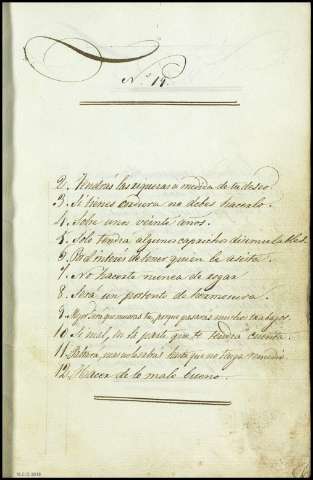 N.º 14.
2. Tendrás las riquezas a medida de tu deseo.
3. Si tienes cordura no debes hacerlo.
4. Sobre unos veinte años.
5. Solo tendra algunos caprichos
6. Por el interés de tener quien la asista.
7. No hacerte nunca de rogar
8. Será un portento de hermosura.
9. Mejor será que muera tu, porque pasarás muchos trabajos.
10. Si mal, en la parte que te tendra cuenta.
11. Rabiará, mas no lo sabrás hasta que no tenga remedio
12. Hacer de lo malo bueno.